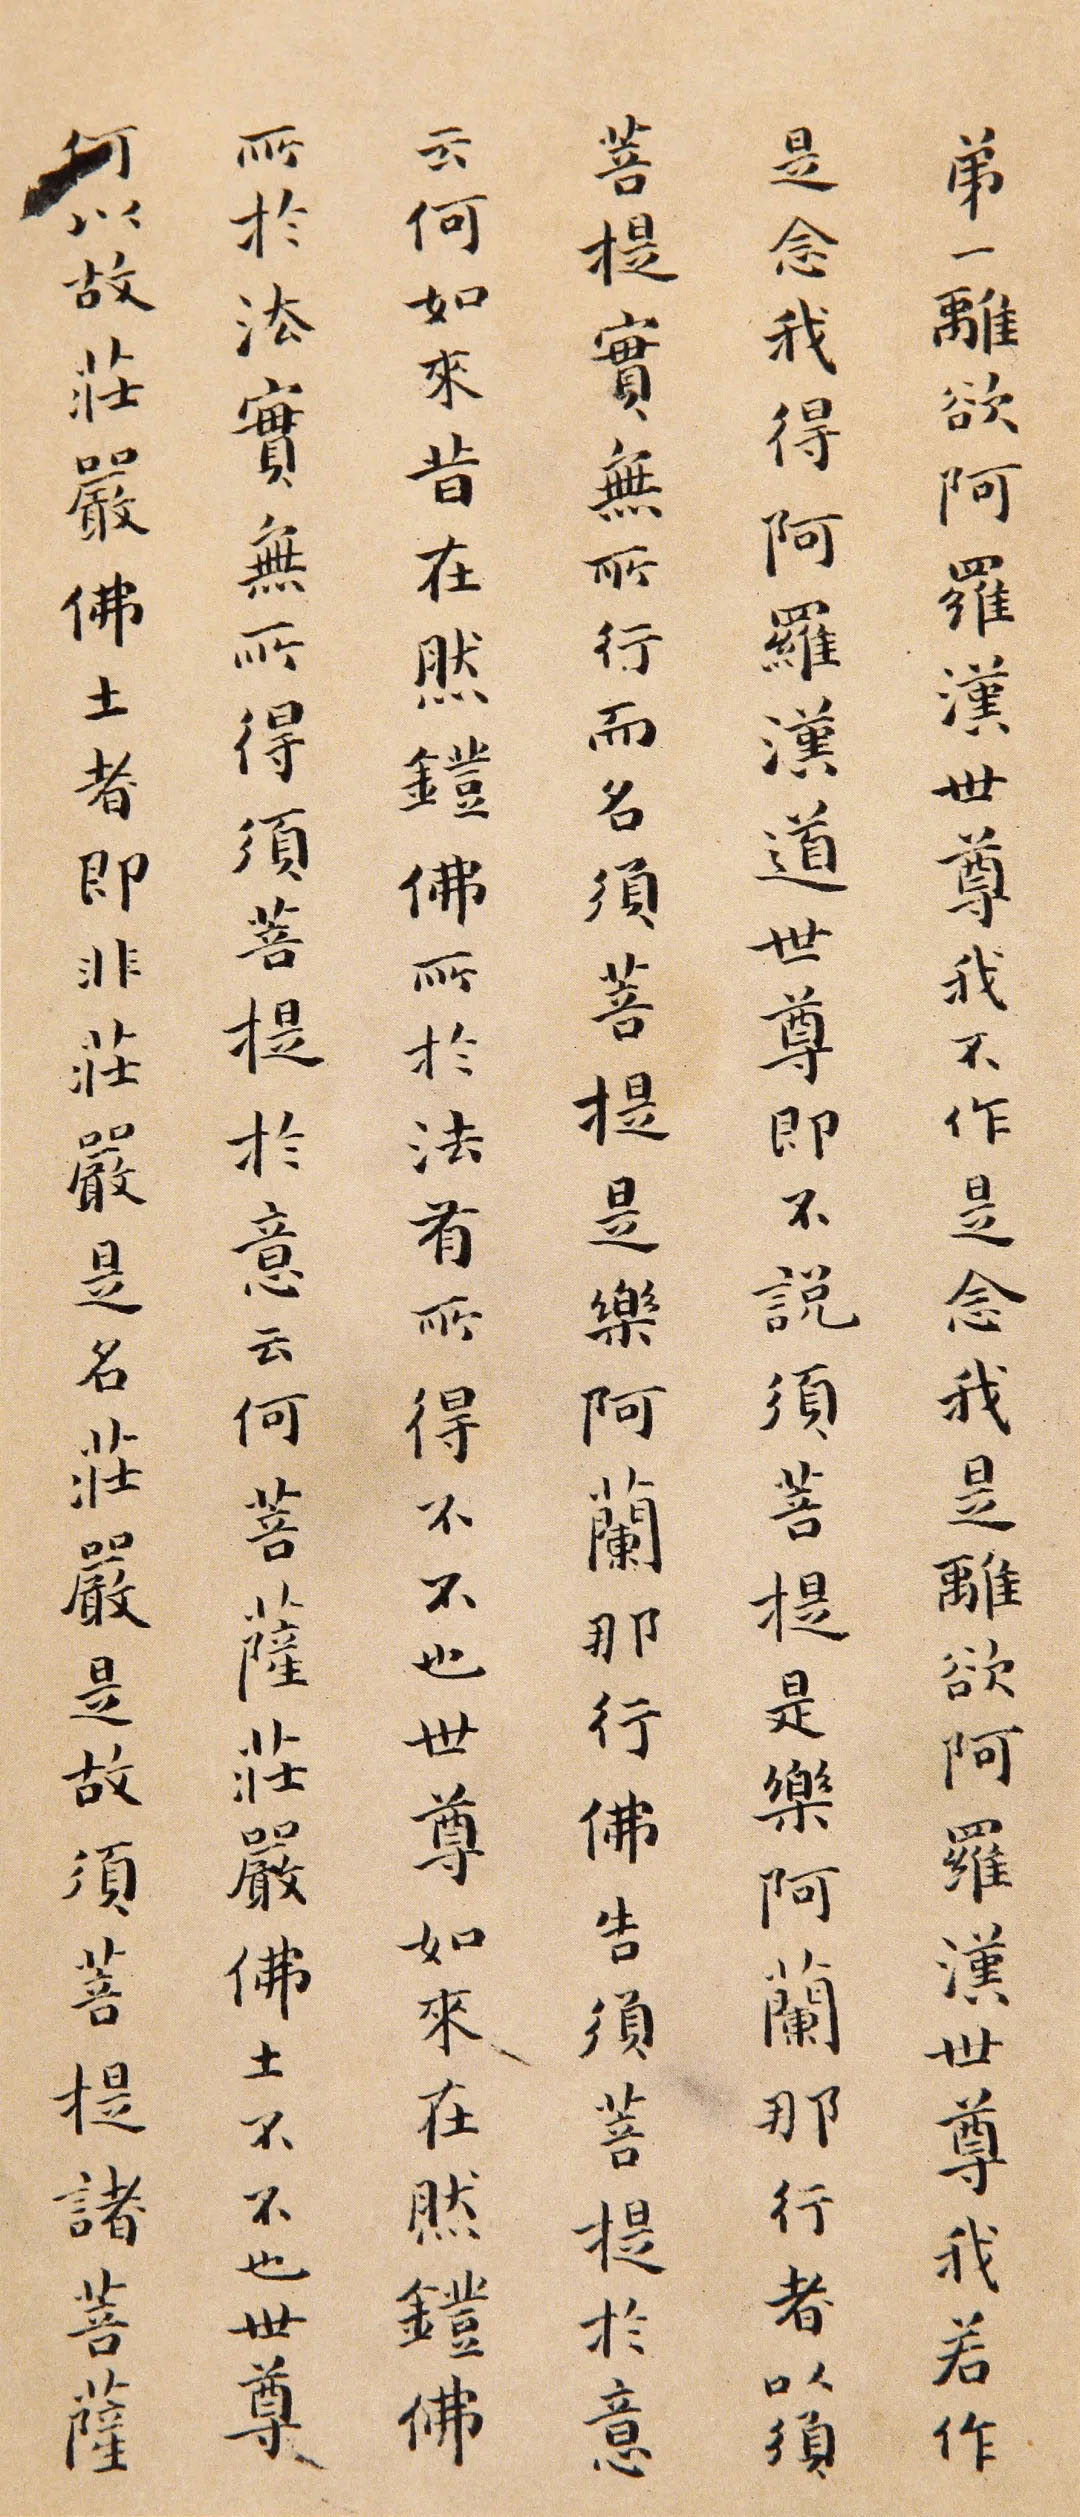 弟一離欲阿羅漢世尊我不作是念我是離欲阿羅漢世尊我若作
是念我得阿羅漢道世尊即不說須菩提是樂阿蘭那行者以須
菩提實無所行而名須菩提是樂阿蘭那行佛告須菩提於意
云何如來昔在然鐙佛所於法有所得不不也世尊如來在然鐙佛
所於法實無所得須菩提於意云何菩薩莊嚴佛土不不也世尊
何以故莊嚴佛土者即非莊嚴是名莊嚴是故須菩提諸菩薩